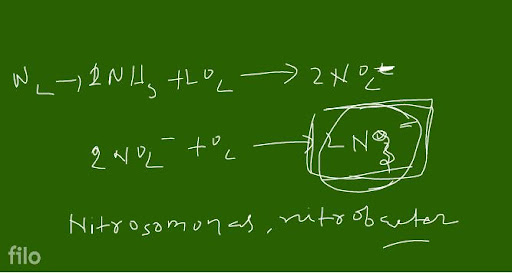 N₂ → 2NH₃ + 2O₂ → 2NO₂⁻
2NO₂⁻ + O₂ → 2NO₃⁻
Nitrosomonas, nitrobacter
filo